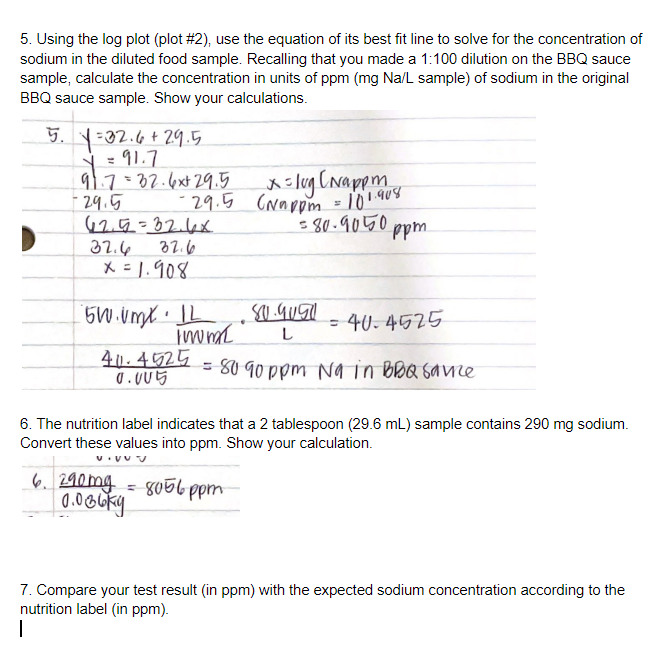 5. Using the log plot (plot #2), use the equation of its best fit line to solve for the concentration of
sodium in the diluted food sample. Recalling that you made a 1:100 dilution on the BBQ sauce
sample, calculate the concentration in units of ppm (mg Na/L sample) of sodium in the original
BBQ sauce sample. Show your calculations.
5. y=32.6+29.5
y = 91.7
91.7 = 32.6x+29.5
-29.5 -29.5
62.5 = 32.6x
32.6 32.6
x = 1.908
x = log CNappm
CNappm = 10^1.908
= 80.9050 ppm
500.0mL · 1L / 1000mL · 80.9050 / L = 40.4525
40.4525 / 0.005 = 8090 ppm Na in BBQ sauce
6. The nutrition label indicates that a 2 tablespoon (29.6 mL) sample contains 290 mg sodium.
Convert these values into ppm. Show your calculation.
6. 290mg / 0.036kg = 8056 ppm
7. Compare your test result (in ppm) with the expected sodium concentration according to the
nutrition label (in ppm).